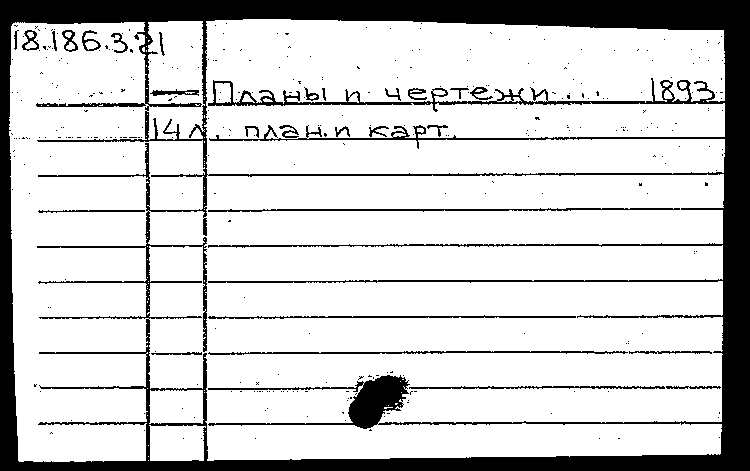 18.186.3.21
— Планы и чертежи... 1893
14 л. план. и карт.